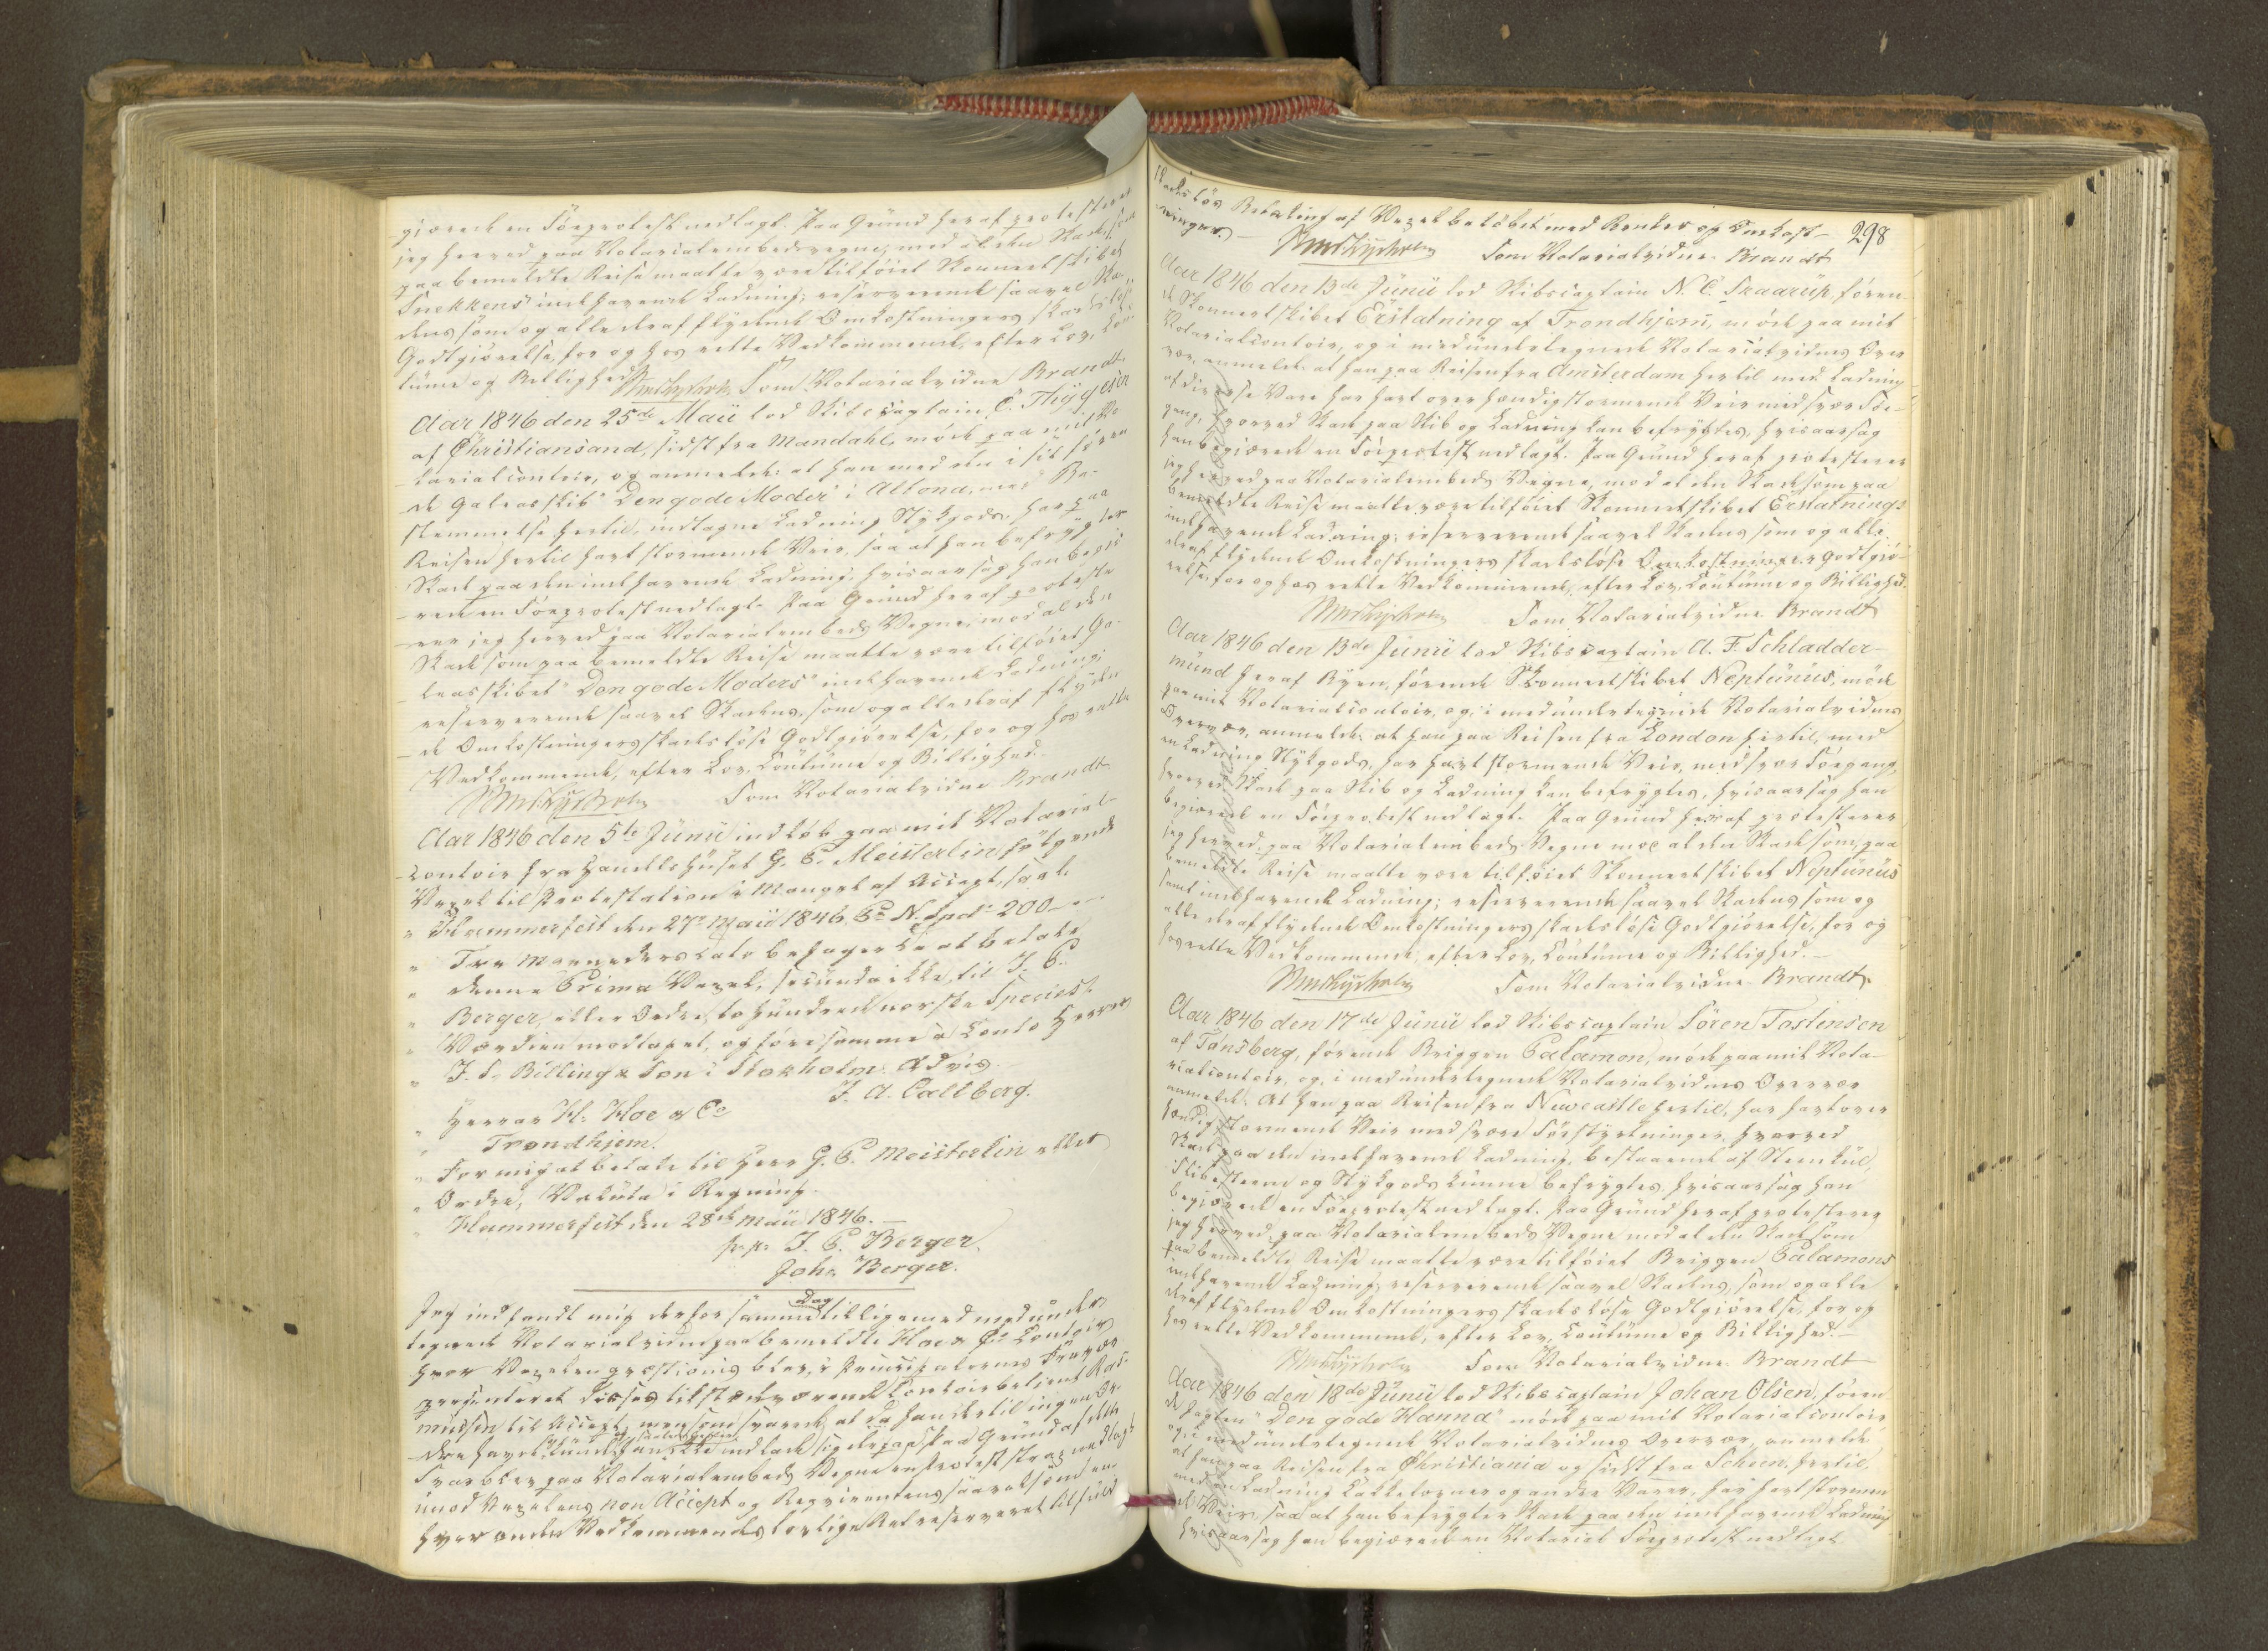 gjørende en Søeprotest nedlagt. Paa Grund heraf protesterer
jeg herved paa Notarialembedsvegne, mod al den Skade, som
paa bemeldte Reise maatte være tilføiet Skonnertskibet
Snekkens indehavende Ladning; reserverende saavel Ska-
dens som og alle deraf flydende Omkostningers skadesløse
Godtgjørelse, for og hos rette Vedkommende, efter Lov, Cou-
tume og Billighed.
Som Notarialvidne Brandt
Aar 1846 den 25de Maii lod Skibscaptain C. Thygesen
af Christiansand, sidst fra Mandahl, møde paa mit No-
tarialcontoir, og anmelde: at han med den i sit føren-
de Galeasskib "Den gode Moder" i Altona, med Be-
stemmelse hertil, indtagne Ladning Stykgods, har paa
Reisen hertil havt stormende Veir, saa at han befrygter
Skade paa den indehavende Ladning, hvisaarsag han begjæ-
rede en Søeprotest nedlagt. Paa Grund heraf proteste-
rer jeg herved paa Notarialembeds Vegne, mod al den
Skade som paa bemeldte Reise maatte være tilføiet Ga-
leasskibet "Den gode Moders" indehavende Ladning;
reserverende saavel Skadens, som og alle deraf flyden-
de Omkostningers skadesløse Godtgjørelse, for og hos rette
Vedkommende, efter Lov, Coutume og Billighed.
Som Notarialvidne Brandt
Aar 1846 den 5te Junii indløb paa mit Notarial-
contoir fra Handelshuset G. C. Meisterlin følgende
Vexel til Protestation i Mangel af Accept, saal.
" Hammerfest den 27de Maii 1846. Pr. N. Spd. 200
" Tre Maaneders Dato behager De at betale
" denne Prima Vexel, secunda ikke, til J. C.
" Berger, eller Ordre, to hundrede norske Species.
" Værdien modtaget, og føre samme a Conto Herrer
" J. S. Billing & Søn i Stokholm. Advis.
J. A. Carlberg.
" Herrer H. Hoe & Co
" Trondhjem.
" For mig at betale til Herr G. C. Meisterlin eller
" Ordre, Valuta i Regning.
" Hammerfest den 28de Maii 1846.
pr. pr. J. C. Berger.
Joh. Berger.
Jeg indfandt mig derfor samme Dag tilligemed medunder-
tegnede Notarialvidne paa bemeldte Hoe & Co Contoir
hvor Vexelen qvæstionis blev, i Principalernes Fravær
presenteret disses tilstedeværende Contoirbetjent Ras-
mussen til Accept, men som svarede at da han dertil ingen Or-
dre havde, kunde han ikke indlade sig derpaa; Paa Grund af dette
Svar blev paa Notarialembeds Vegne en Protest strax nedlagt
imod Vexelens non Accept og Reqvirentens saavelsom en-
hver anden Vedkommendes lovlige Ret reserveret til fuld
skadesløs Betaling af Vexelbeløbet med Renter og Omkost-
ninger.
298
Som Notarialvidne Brandt
Aar 1846 den 13de Junii lod Skibscaptain N. C. Traarup, føren-
de Skonnertskibet Erstatning af Trondhjem, møde paa mit
Notarialcontoir, og i medundertegnede Notarialvidnes Over-
vær, anmelde: at han paa Reisen fra Amsterdam hertil med Ladning
af diverse Vare har havt overhændig stormende Veir med svær Søe-
gang, hvorved Skade paa Skib og Ladning kan befrygtes, hvisaarsag
han begjærede en Søeprotest nedlagt. Paa Grund heraf protesterer
jeg herved paa Notarialembeds Vegne, mod al den Skade som paa
bemeldte Reise maatte være tilføiet Skonnertskibet Erstatnings
indehavende Ladning; reserverende saavel Skadens som og alle
deraf flydende Omkostningers skadesløse Omkostninger Godtgjø-
relse, for og hos rette Vedkommende, efter Lov, Coutume og Billighed.
Som Notarialvidne Brandt
Aar 1846 den 13de Junii lod Skibscaptain A. F. Schladder-
mund heraf Byen, førende Skonnertskibet Neptunus, møde
paa mit Notarialcontoir, og, i medundertegnede Notarialvidnes
Overvær, anmelde: at han paa Reisen fra London hertil, med
en Ladning Stykgods, har havt stormende Veir, med svær Søegang,
hvorved Skade paa Skib og Ladning kan befrygtes, hvisaarsag han
begjærede en Søeprotest nedlagt. Paa Grund heraf protesterer
jeg herved, paa Notarialembeds Vegne mod al den Skade som, paa
bemeldte Reise maatte være tilføiet Skonnertskibet Neptunus
samt indehavende Ladning; reserverende saavel Skadens som og
alle deraf flydende Omkostningers skadesløse Godtgjørelse, for og
hos rette Vedkommende, efter Lov, Coutume og Billighed.
Som Notarialvidne Brandt.
Aar 1846 den 17de Junii lod Skibscaptain Søren Tostensen
af Tønsberg, førende Briggen Palamon, møde paa mit Nota-
rialcontoir, og, i medundertegnede Notarialvidnes Overvær
anmelde: At han paa Reisen fra Newcastle hertil, har havt over-
hændig stormende Veir med svære Søestyrtninger, hvorved
Skade paa den indehavende Ladning, bestaaende af Steenkul,
Slibesteene og Stykgods kunne befrygtes, hvisaarsag han
begjærede en Søeprotest nedlagt. Paa Grund heraf protesterer
jeg herved, paa Notarialembeds Vegne mod al den Skade som
paa bemeldte Reise maatte være tilføiet Briggen Palamons
indehavende Ladning; reserverende saavel Skadens, som og alle
deraf flydende Omkostningers skadesløse Godtgjørelse, for og
hos rette Vedkommende, efter Lov, Coutume og Billighed.
Som Notarialvidne Brandt
Aar 1846 den 18de Junii lod Skibscaptain Johan Olsen, føren-
de Jagten "Den gode Hanna" møde paa mit Notarialcontoir
og, i medundertegnede Notarialvidnes Overvær, anmelde
at han paa Reisen fra Christiania og sidst fra Scheen, hertil,
med en Ladning Kakkelovner og andre Varer, har havt stormen-
de Veir, saa at han befrygter Skade paa den indehavende Ladning
hvisaarsag han begjærede en Notarial Søeprotest nedlagt